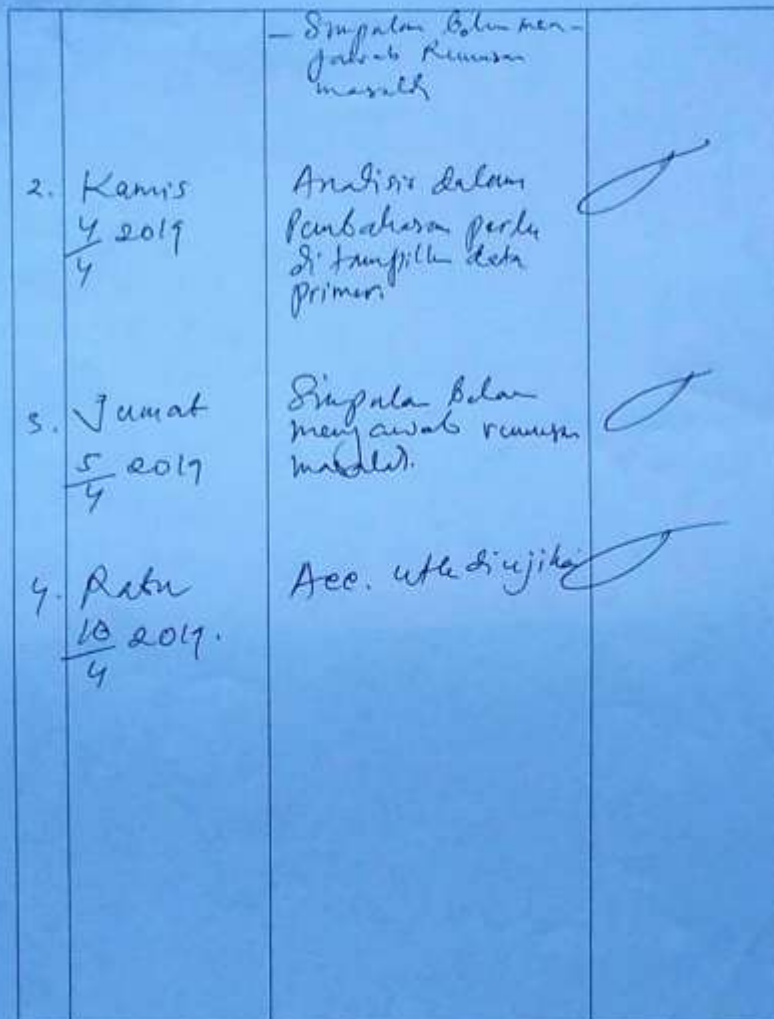 - Simpulan belum men-
jawab Rumusan
masalah
2. Kamis
4/4 2019
Analisis dalam
Pembahasan perlu
ditampilkn data
primer.
3. Jumat
5/4 2019
Simpulan Belum
menjawab rumusan
masalah.
4. Rabu
10/4 2019.
Acc. utk diujikan